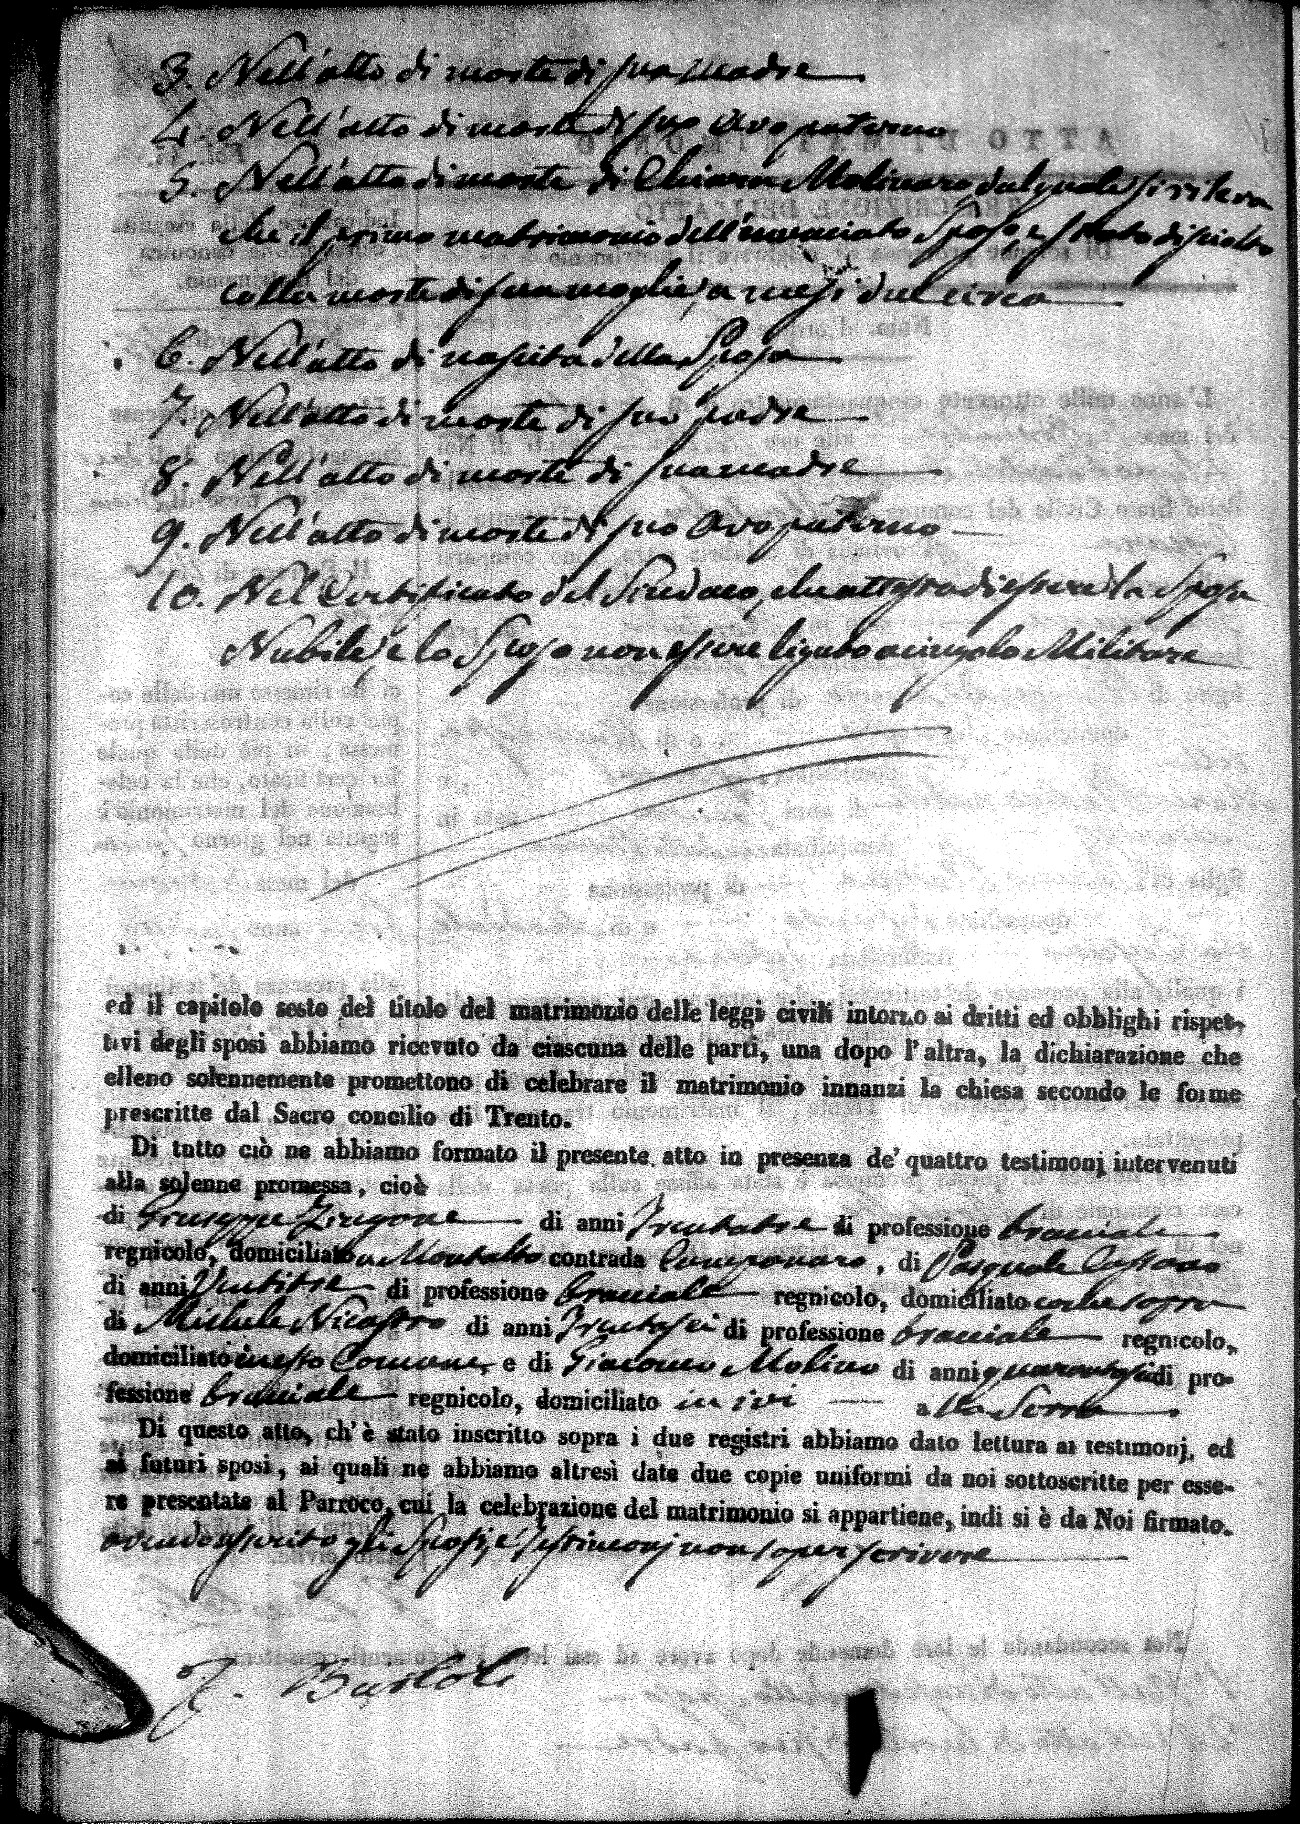 3. Nell'atto di morte di sua madre
4. Nell'atto di morte di suo Avo paterno
5. Nell'atto di morte di Chiara Molinaro, dal quale si rileva
che il primo matrimonio dell'enunciato Sposo, è stato disciolto
colla morte di sua moglie, a mesi due circa
6. Nell'atto di nascita della Sposa
7. Nell'atto di morte di suo padre
8. Nell'atto di morte di sua madre
9. Nell'atto di morte di suo Avo paterno
10. Nel Certificato del Sindaco, che attesta di essere la Sposa
Nubile, e lo Sposo non essere ligato a cingolo Militare
ed il capitolo sesto del titolo del matrimonio delle leggi civili intorno ai dritti ed obblighi rispet-
tivi degli sposi abbiamo ricevuto da ciascuna delle parti, una dopo l'altra, la dichiarazione che
elleno solennemente promettono di celebrare il matrimonio innanzi la chiesa secondo le forme
prescritte dal Sacro concilio di Trento.
Di tutto ciò ne abbiamo formato il presente atto in presenza de' quattro testimonj intervenuti
alla solenne promessa, cioè
di Giuseppe di anni Trentatre di professione bracciale
regnicolo, domiciliato a Montalto contrada , di Pasquale Cassano
di anni Ventitre di professione bracciale regnicolo, domiciliato come sopra
di Michele Nicastro di anni Trentasei di professione bracciale regnicolo,
domiciliato in esso Comune, e di Giacomo Molino di anni quarantasei di pro-
fessione bracciale regnicolo, domiciliato in ivi alla Serra
Di questo atto, ch'è stato inscritto sopra i due registri abbiamo dato lettura ai testimonj, ed
ai futuri sposi, ai quali ne abbiamo altresì date due copie uniformi da noi sottoscritte per esse-
re presentate al Parroco, cui la celebrazione del matrimonio si appartiene, indi si è da Noi firmato.
avendo asserito gli Sposi, e' Testimonj non saper scrivere